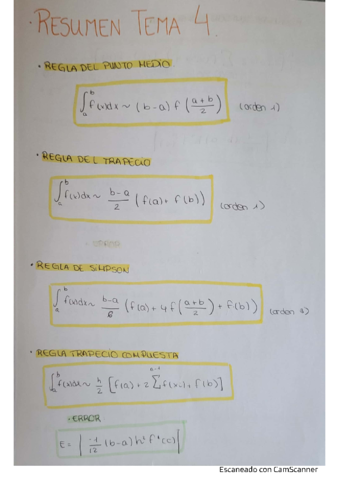 · RESUMEN TEMA 4.
· REGLA DEL PUNTO MEDIO.
∫ₐᵇ f(x)dx ~ (b-a) f (a+b / 2) (orden 1)
· REGLA DEL TRAPECIO
∫ₐᵇ f(x)dx ~ b-a / 2 (f(a) + f(b)) (orden 1)
· ERROR
· REGLA DE SIMPSON
∫ₐᵇ f(x)dx ~ b-a / 6 (f(a) + 4f(a+b / 2) + f(b)) (orden
· REGLA TRAPECIO COMPUESTA
∫ₐᵇ f(x)dx ~ h/2 [f(a) + 2 ∑ f(xᵢ) + f(b)]
· ERROR
E = | -1/12 (b-a) h² f''(c) |
Escaneado con CamScanner